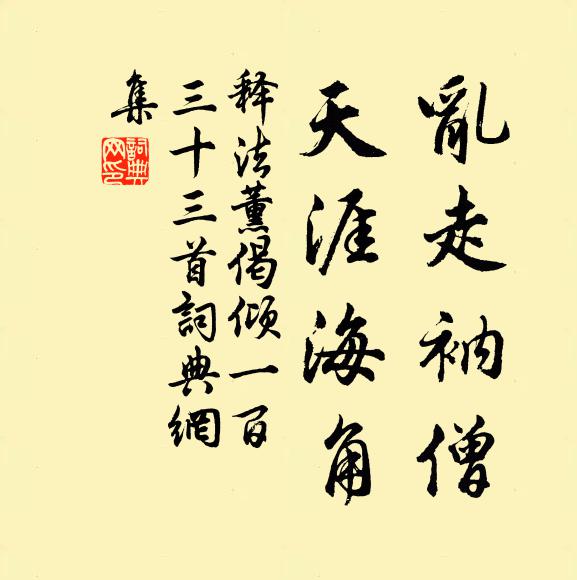 亂走衲僧
天涯海角
释法薰偈倾一百
三十三首詞典網
集
詞典網印